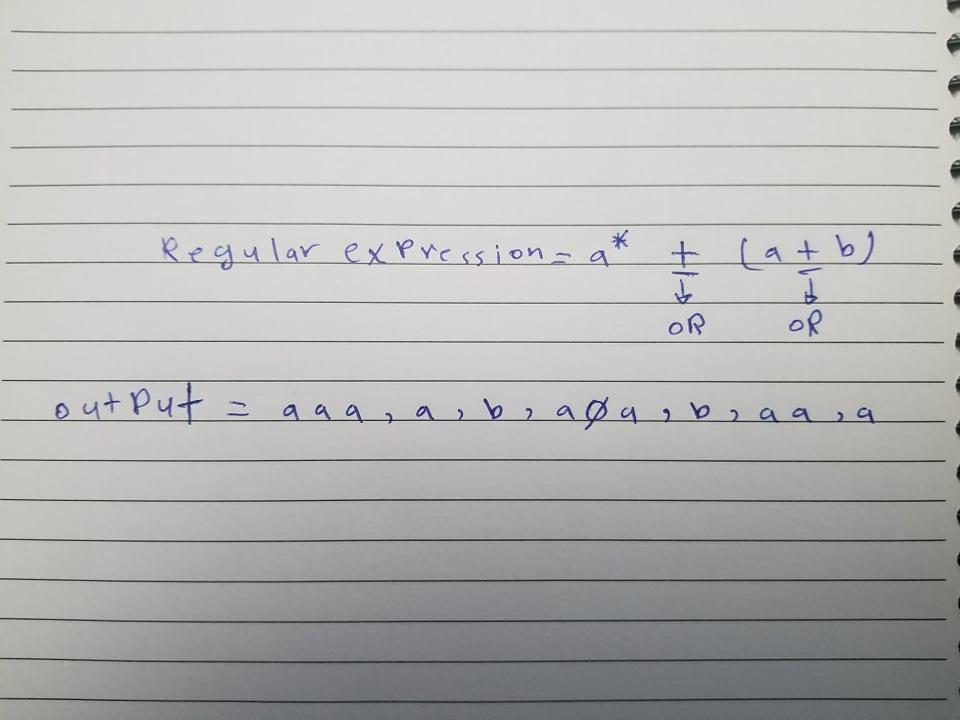 Regular expression = a* + (a + b)
↓ ↓
OR OR
output = aaa, a, b, a∅a, b, aa, a